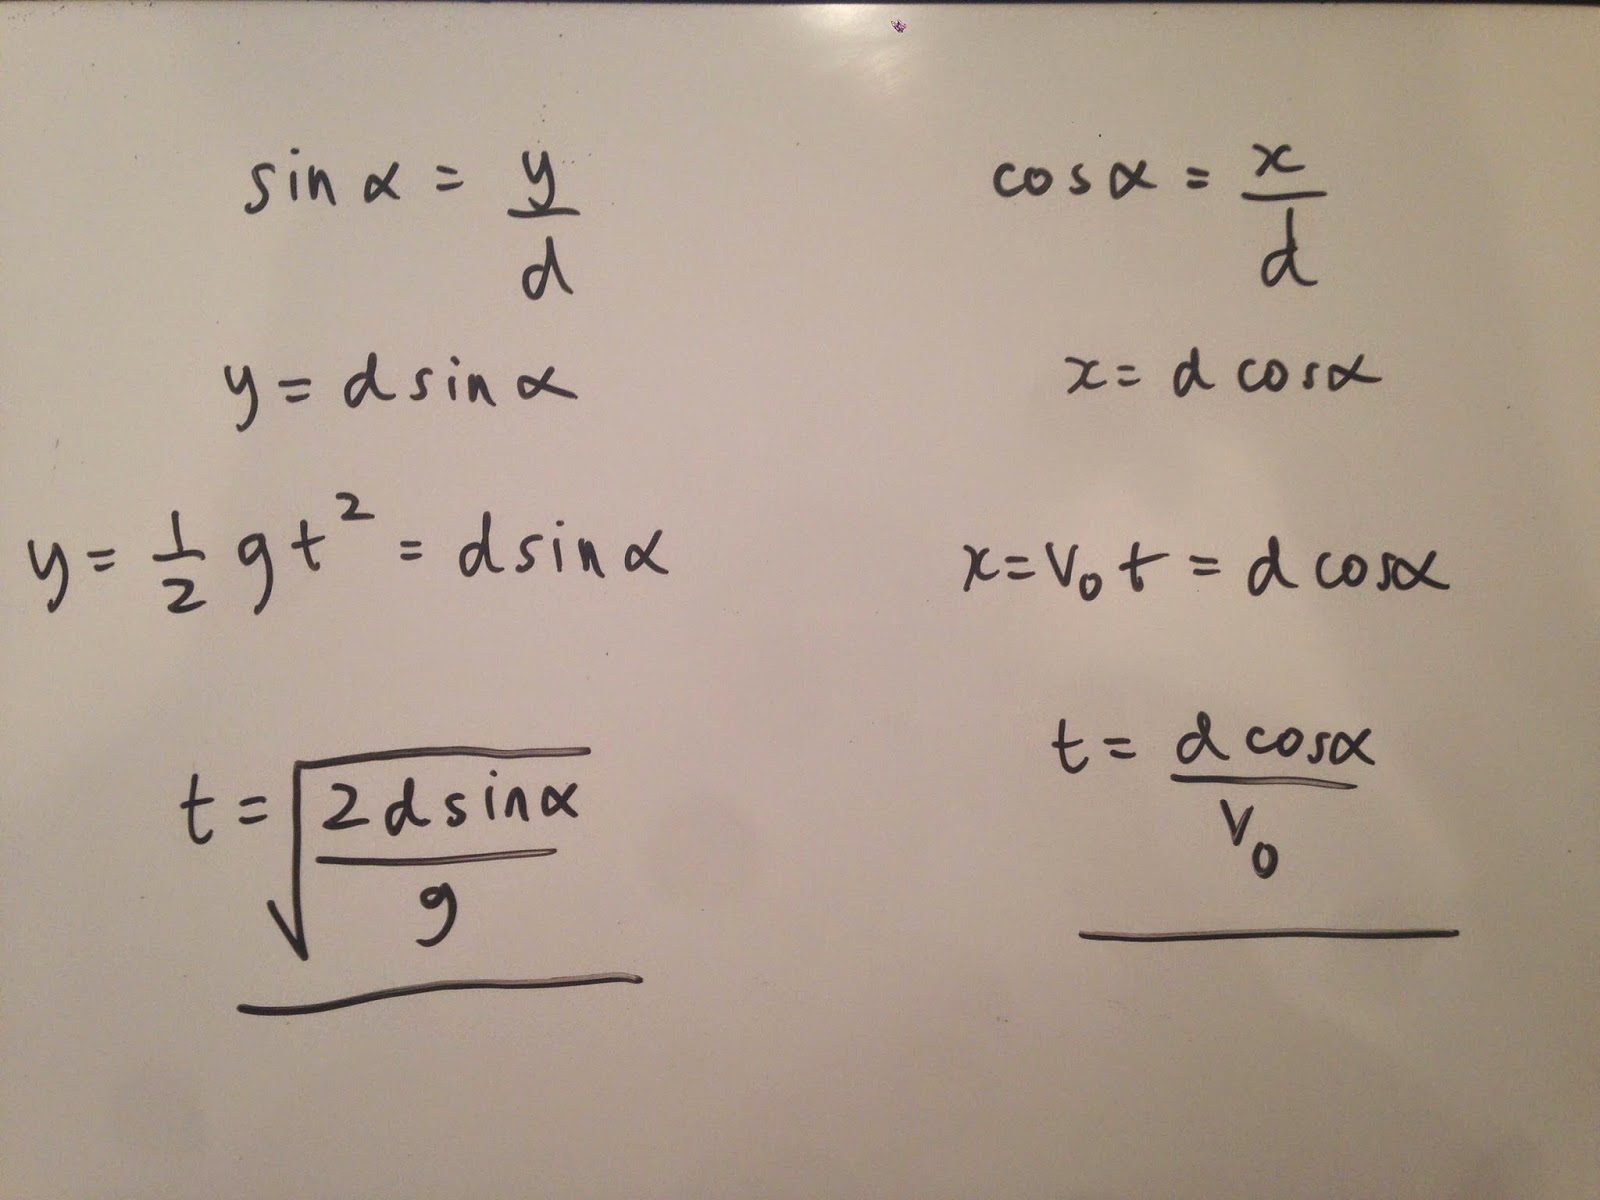 sin α = y/d
y = d sin α
y = 1/2 g t² = d sin α
t = √(2 d sin α / g)
cos α = x/d
x = d cos α
x = v₀ t = d cos α
t = d cos α / v₀